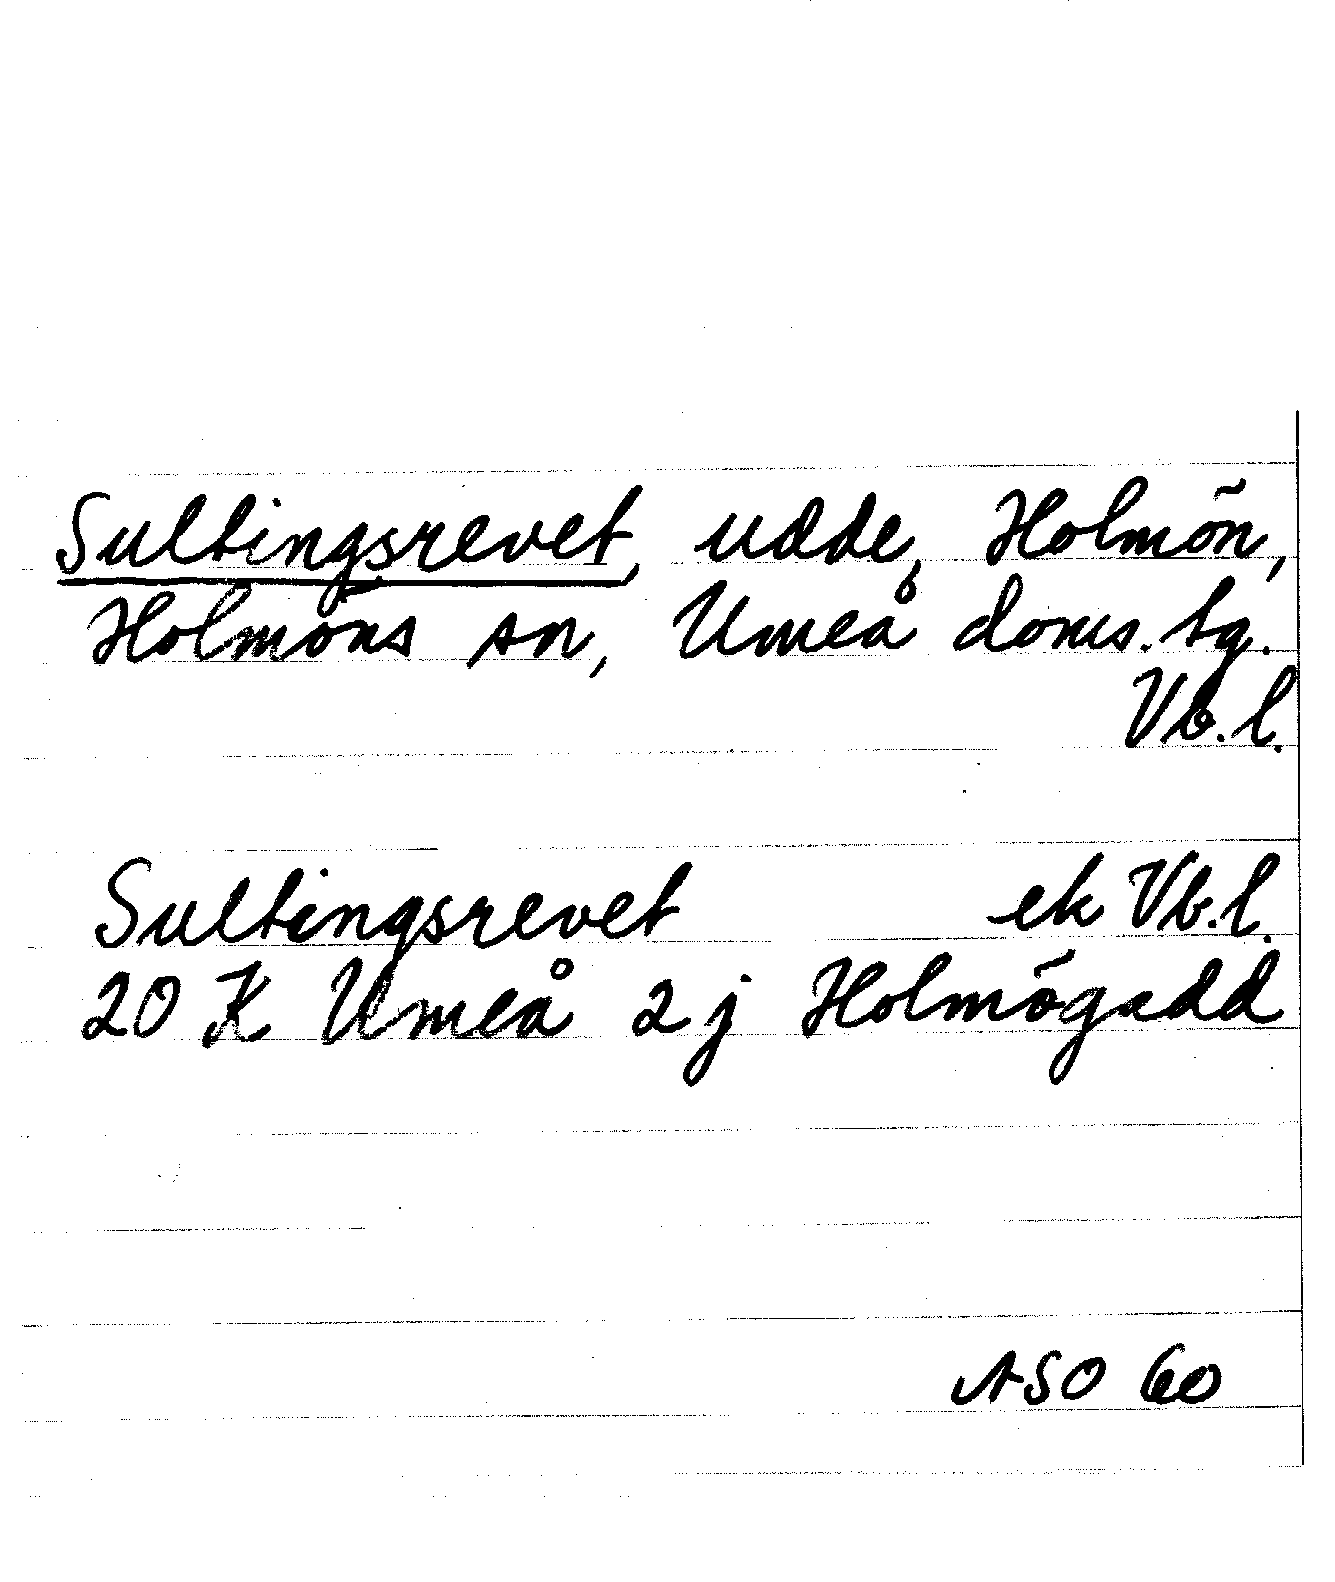 Sultingsrevet, udde, Holmön,
Holmöns sn, Umeå doms. tg.
Vb. l.
Sultingsrevet ek Vb. l.
20 K Umeå 2 j Holmögadd
ASO 60